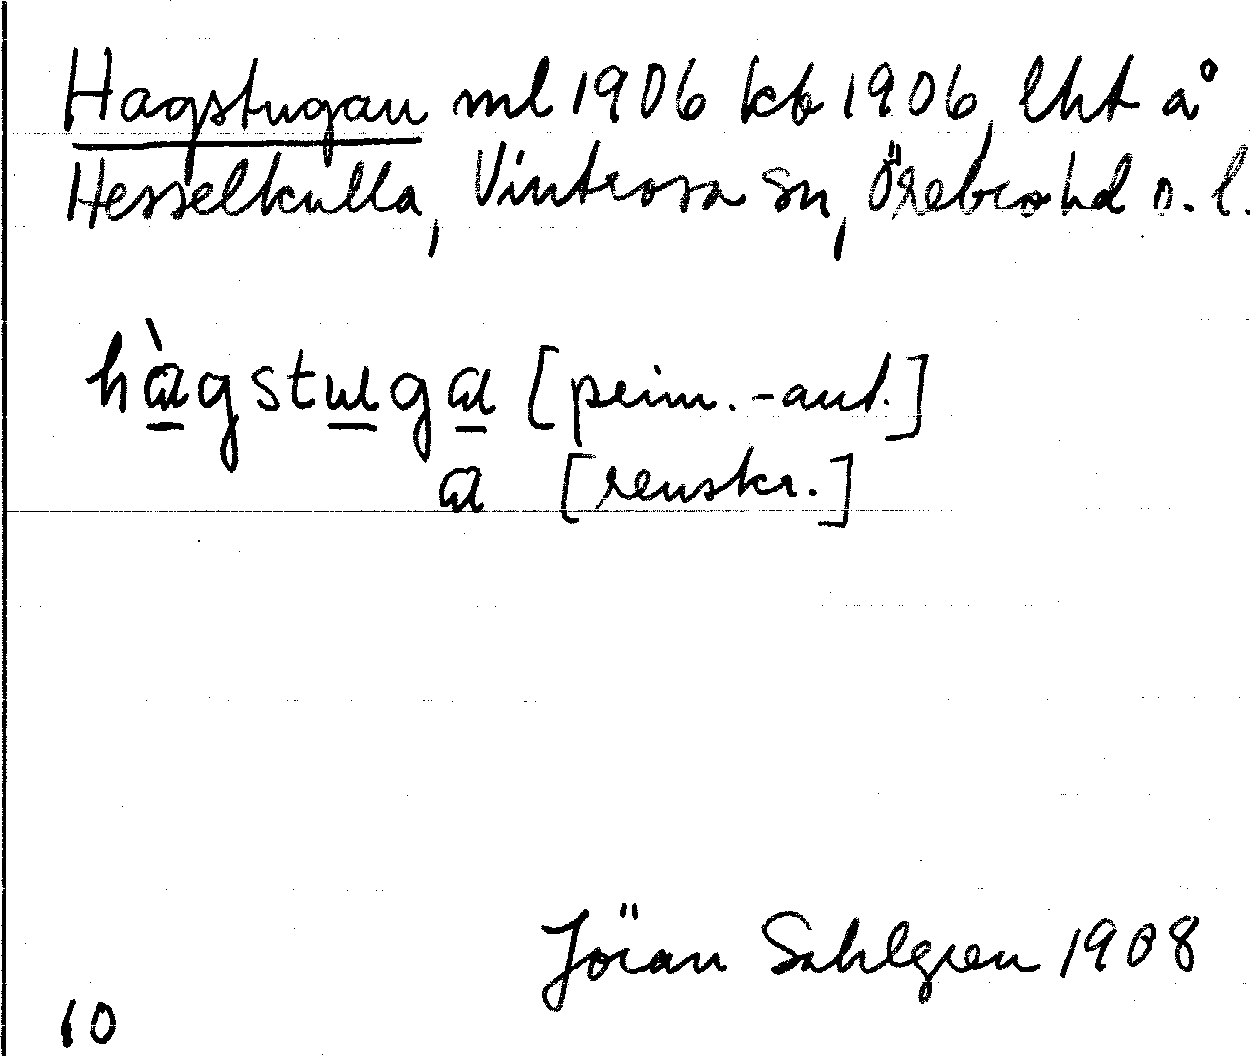 Hagstugan ml 1906 kb 1906, lht å
Hesselkulla, Vintrosa sn, Örebro hd ö. l.
hàgstuga [prim.-ant.]
a [renskr.]
Jöran Sahlgren 1908
10